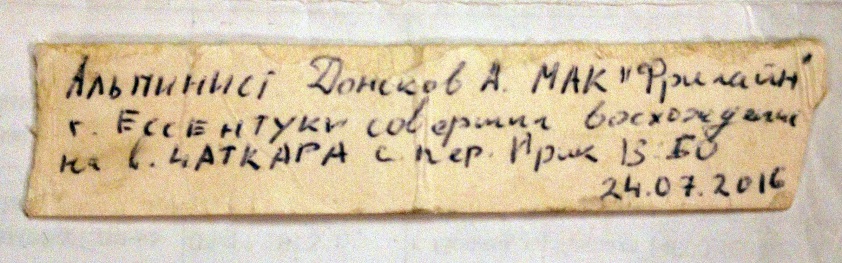 Альпинист Донсков А. МАК "Фрилайн"
г. ЕССЕНТУКИ совершил восхождение
на в. ЧАТКАРА с пер. Ирик 13:50
24.07.2016